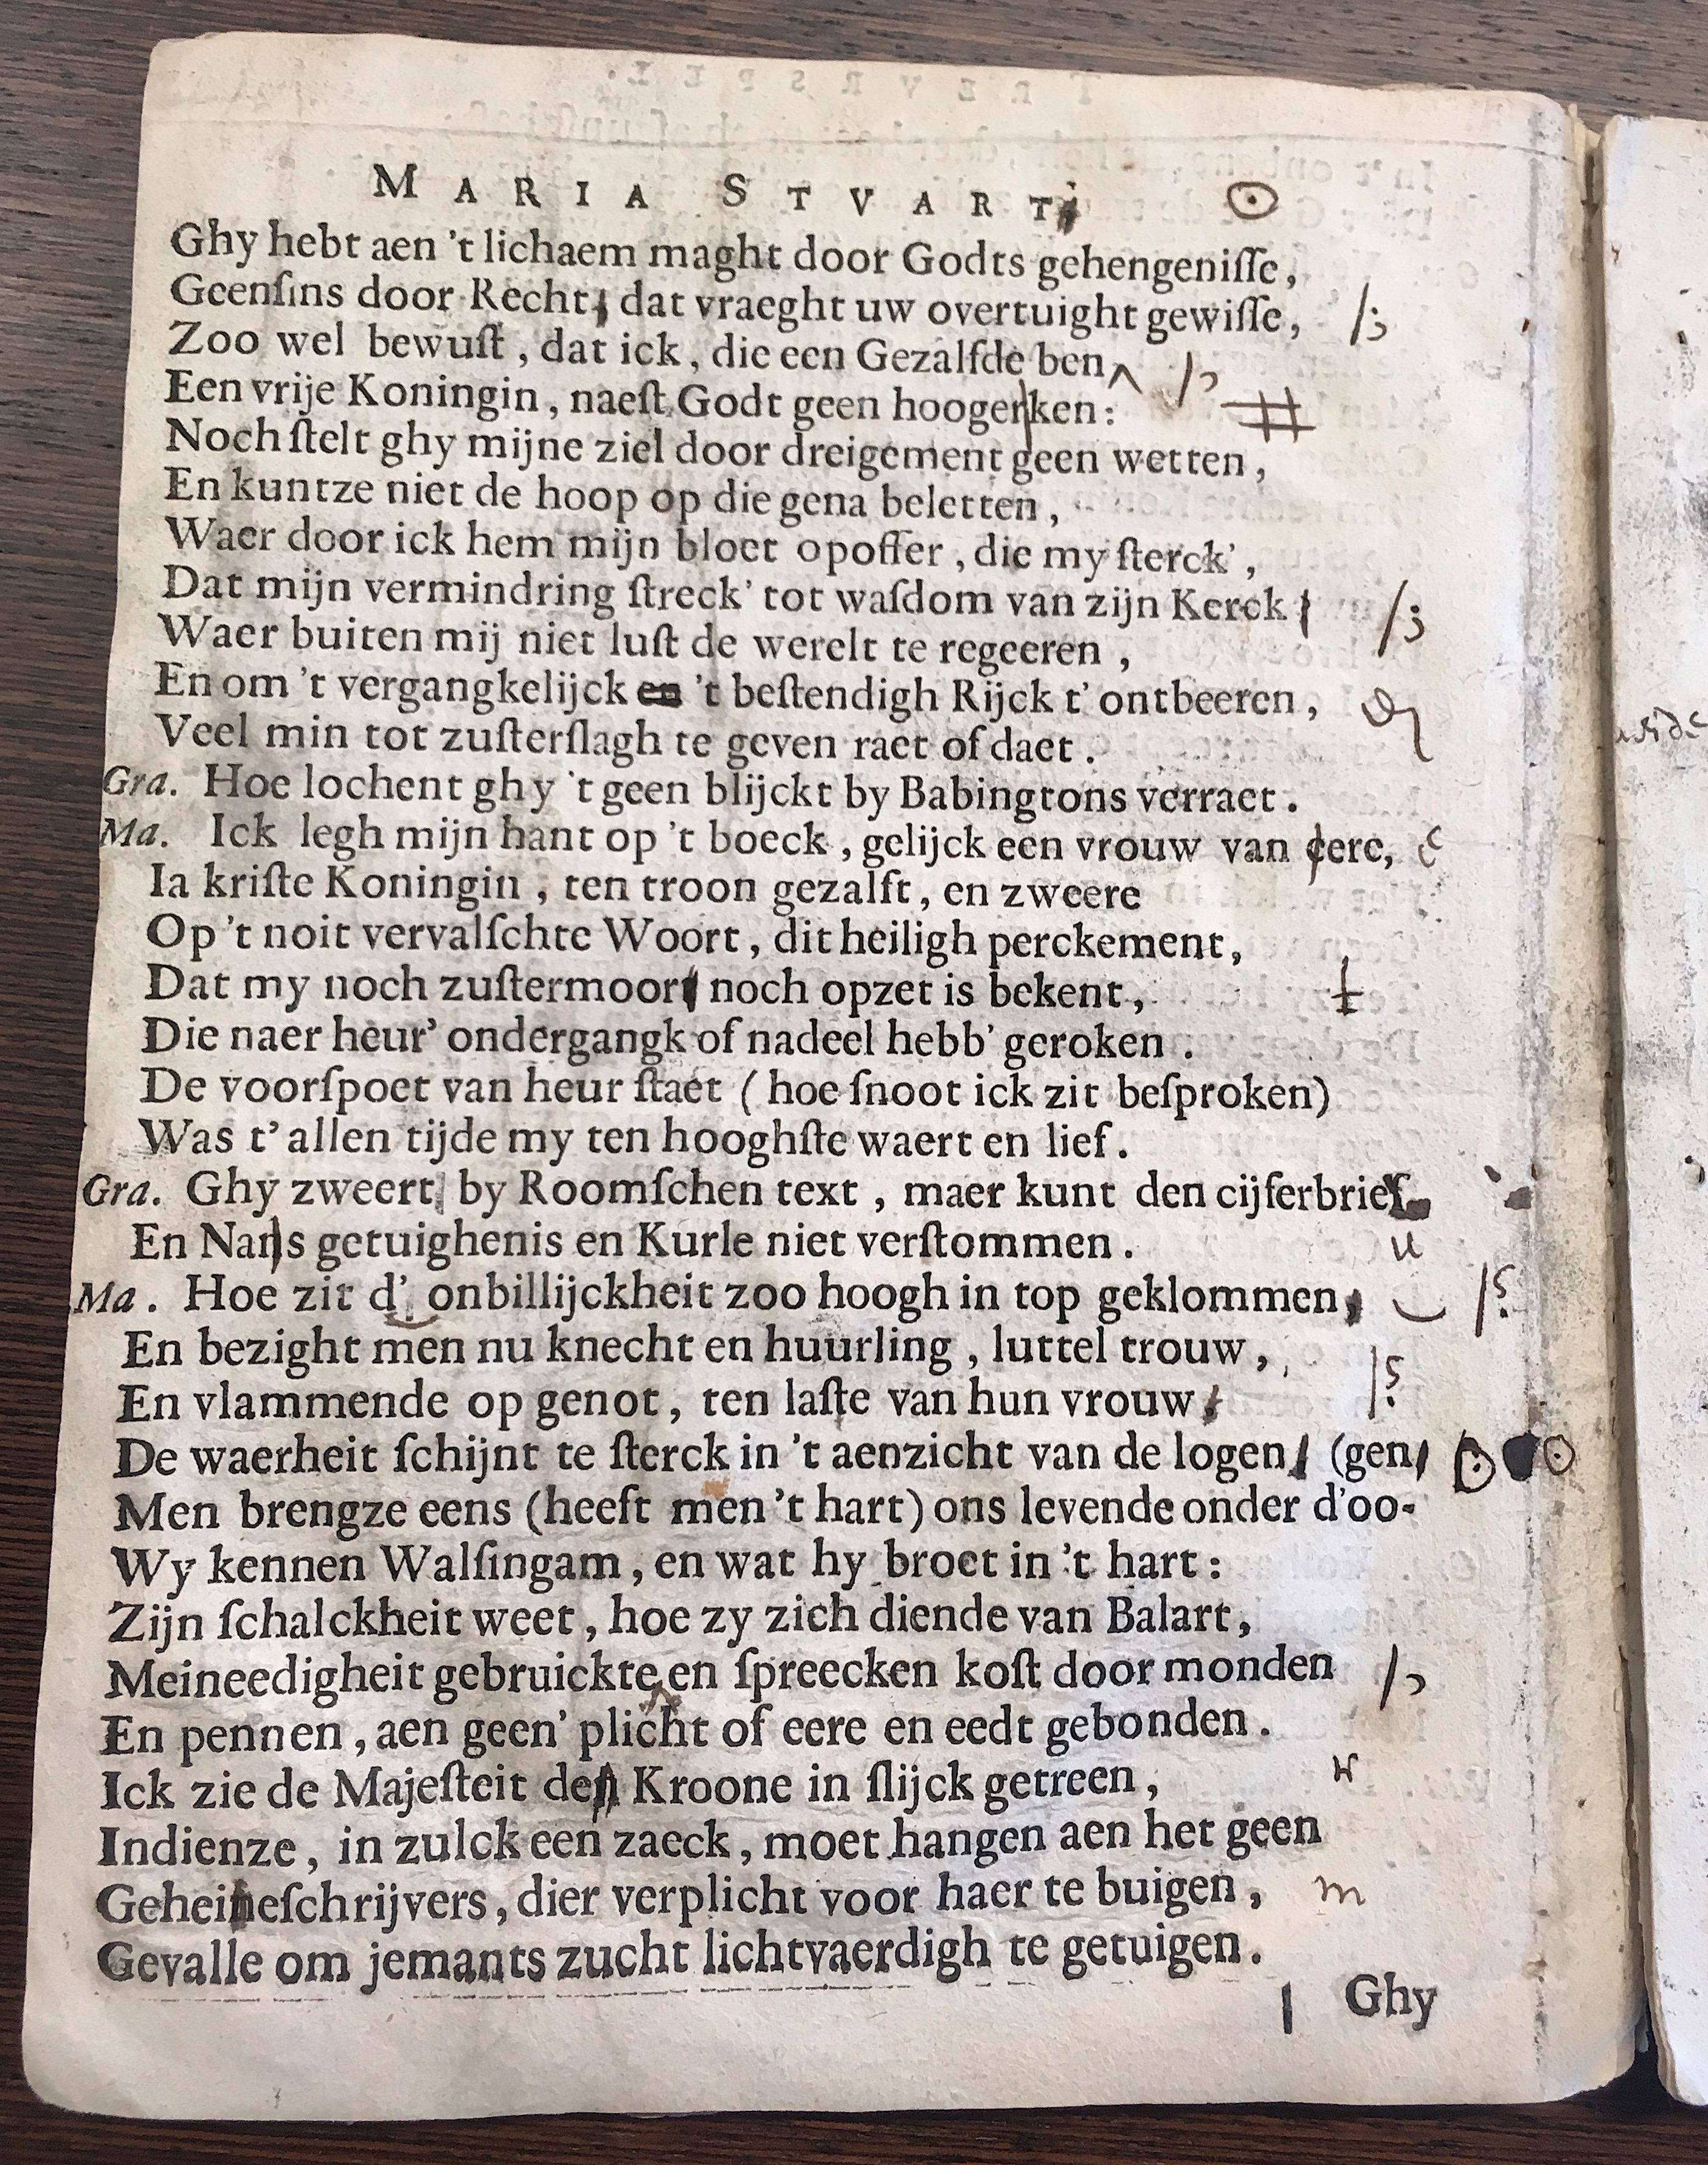 MARIA STVART
Ghy hebt aen 't lichaem maght door Godts gehengenisse,
Geensins door Recht, dat vraeght uw overtuight gewisse, /;
Zoo wel bewust, dat ick, die een Gezalfde ben /,
Een vrije Koningin, naest Godt geen hooger ken: #
Noch stelt ghy mijne ziel door dreigement geen wetten,
En kuntze niet de hoop op die gena beletten,
Waer door ick hem mijn bloet opoffer, die my sterck',
Dat mijn vermindring streck' tot wasdom van zijn Kerck /;
Waer buiten mij niet lust de werelt te regeeren,
En om 't vergangkelijck en 't bestendigh Rijck t' ontbeeren,
Veel min tot zusterslagh te geven raet of daet.
Gra. Hoe lochent ghy 't geen blijckt by Babingtons verraet.
Ma. Ick legh mijn hant op 't boeck, gelijck een vrouw van eere, e
Ia kriste Koningin, ten troon gezalft, en zweere
Op 't noit vervalschte Woort, dit heiligh perckement,
Dat my noch zustermoort noch opzet is bekent, t
Die naer heur' ondergangk of nadeel hebb' geroken.
De voorspoet van heur staet (hoe snoot ick zit besproken)
Was t' allen tijde my ten hooghste waert en lief.
Gra. Ghy zweert by Roomschen text, maer kunt den cijferbrief
En Nans getuighenis en Kurle niet verstommen. u
Ma. Hoe zit d' onbillijckheit zoo hoogh in top geklommen, /?
En bezight men nu knecht en huurling, luttel trouw,
En vlammende op genot, ten laste van hun vrouw /?
De waerheit schijnt te sterck in 't aenzicht van de logen, (gen,
Men brengze eens (heeft men 't hart) ons levende onder d'oo-
Wy kennen Walsingam, en wat hy broet in 't hart:
Zijn schalckheit weet, hoe zy zich diende van Balart,
Meineedigheit gebruickte en spreecken kost door monden /,
En pennen, aen geen' plicht of eere en eedt gebonden.
Ick zie de Majesteit den Kroone in slijck getreen, r
Indienze, in zulck een zaeck, moet hangen aen het geen
Geheineschrijvers, dier verplicht voor haer te buigen, m
Gevalle om jemants zucht lichtvaerdigh te getuigen.
Ghy